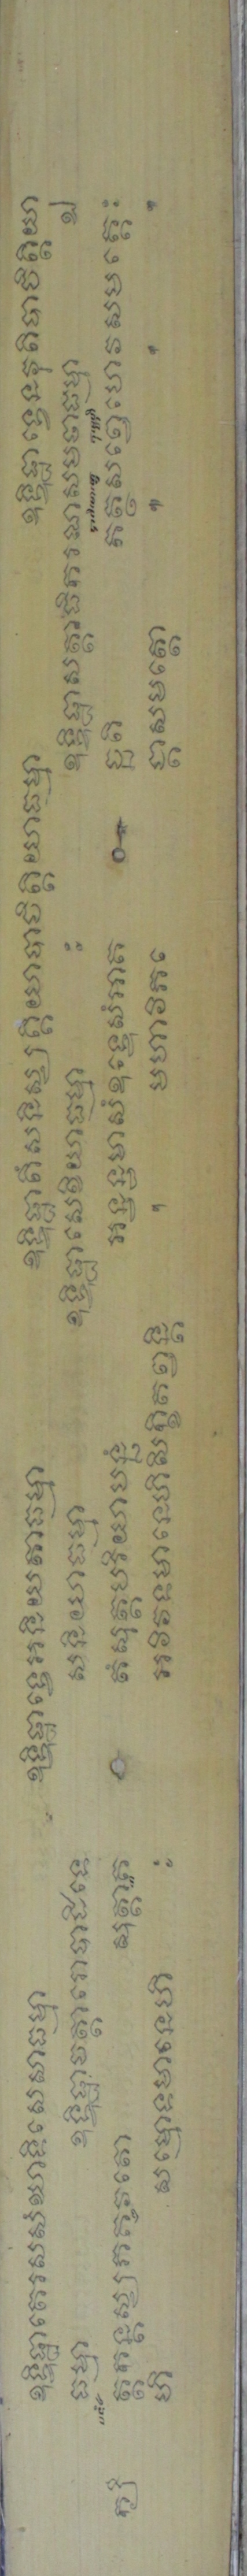 ឧទ្ទិដ្ឋាតេរសសំឃាទិសេសាធម្មា ឧទ្ទិដ្ឋាទ្វេអនិយតាធម្មា ឧទ្ទិដ្ឋាតិំសនិស្សគ្គិយាបាចិត្តិយាធម្មា ឧទ្ទិដ្ឋាទ្វេនវុតិបាចិត្តិយា
ធម្មា ឧទ្ទិដ្ឋាចត្តារោបាដិទេ សនិយាធម្មា ឧទ្ទិដ្ឋាសេខិយាធម្មា ៖ ឧទ្ទិដ្ឋាសត្តាធិករណសមថាធម្មា ឯ
ត្តកន្តស្សភគវតោ សុត្តាគ តំសុត្តបរិយាបន្នំ អន្វទ្ធមាសំឧទ្ទេសំអាគ ច្ឆតិ តត្ថសព្វេហេវសមគ្គេ ៖
ហិ សម្មោទមានេហិ ៖ អវិវទមានេហិសិក្ខិតព្វន្តិ ។ មហាវិភ ង្គោសមត្តោ ។ ។ ។